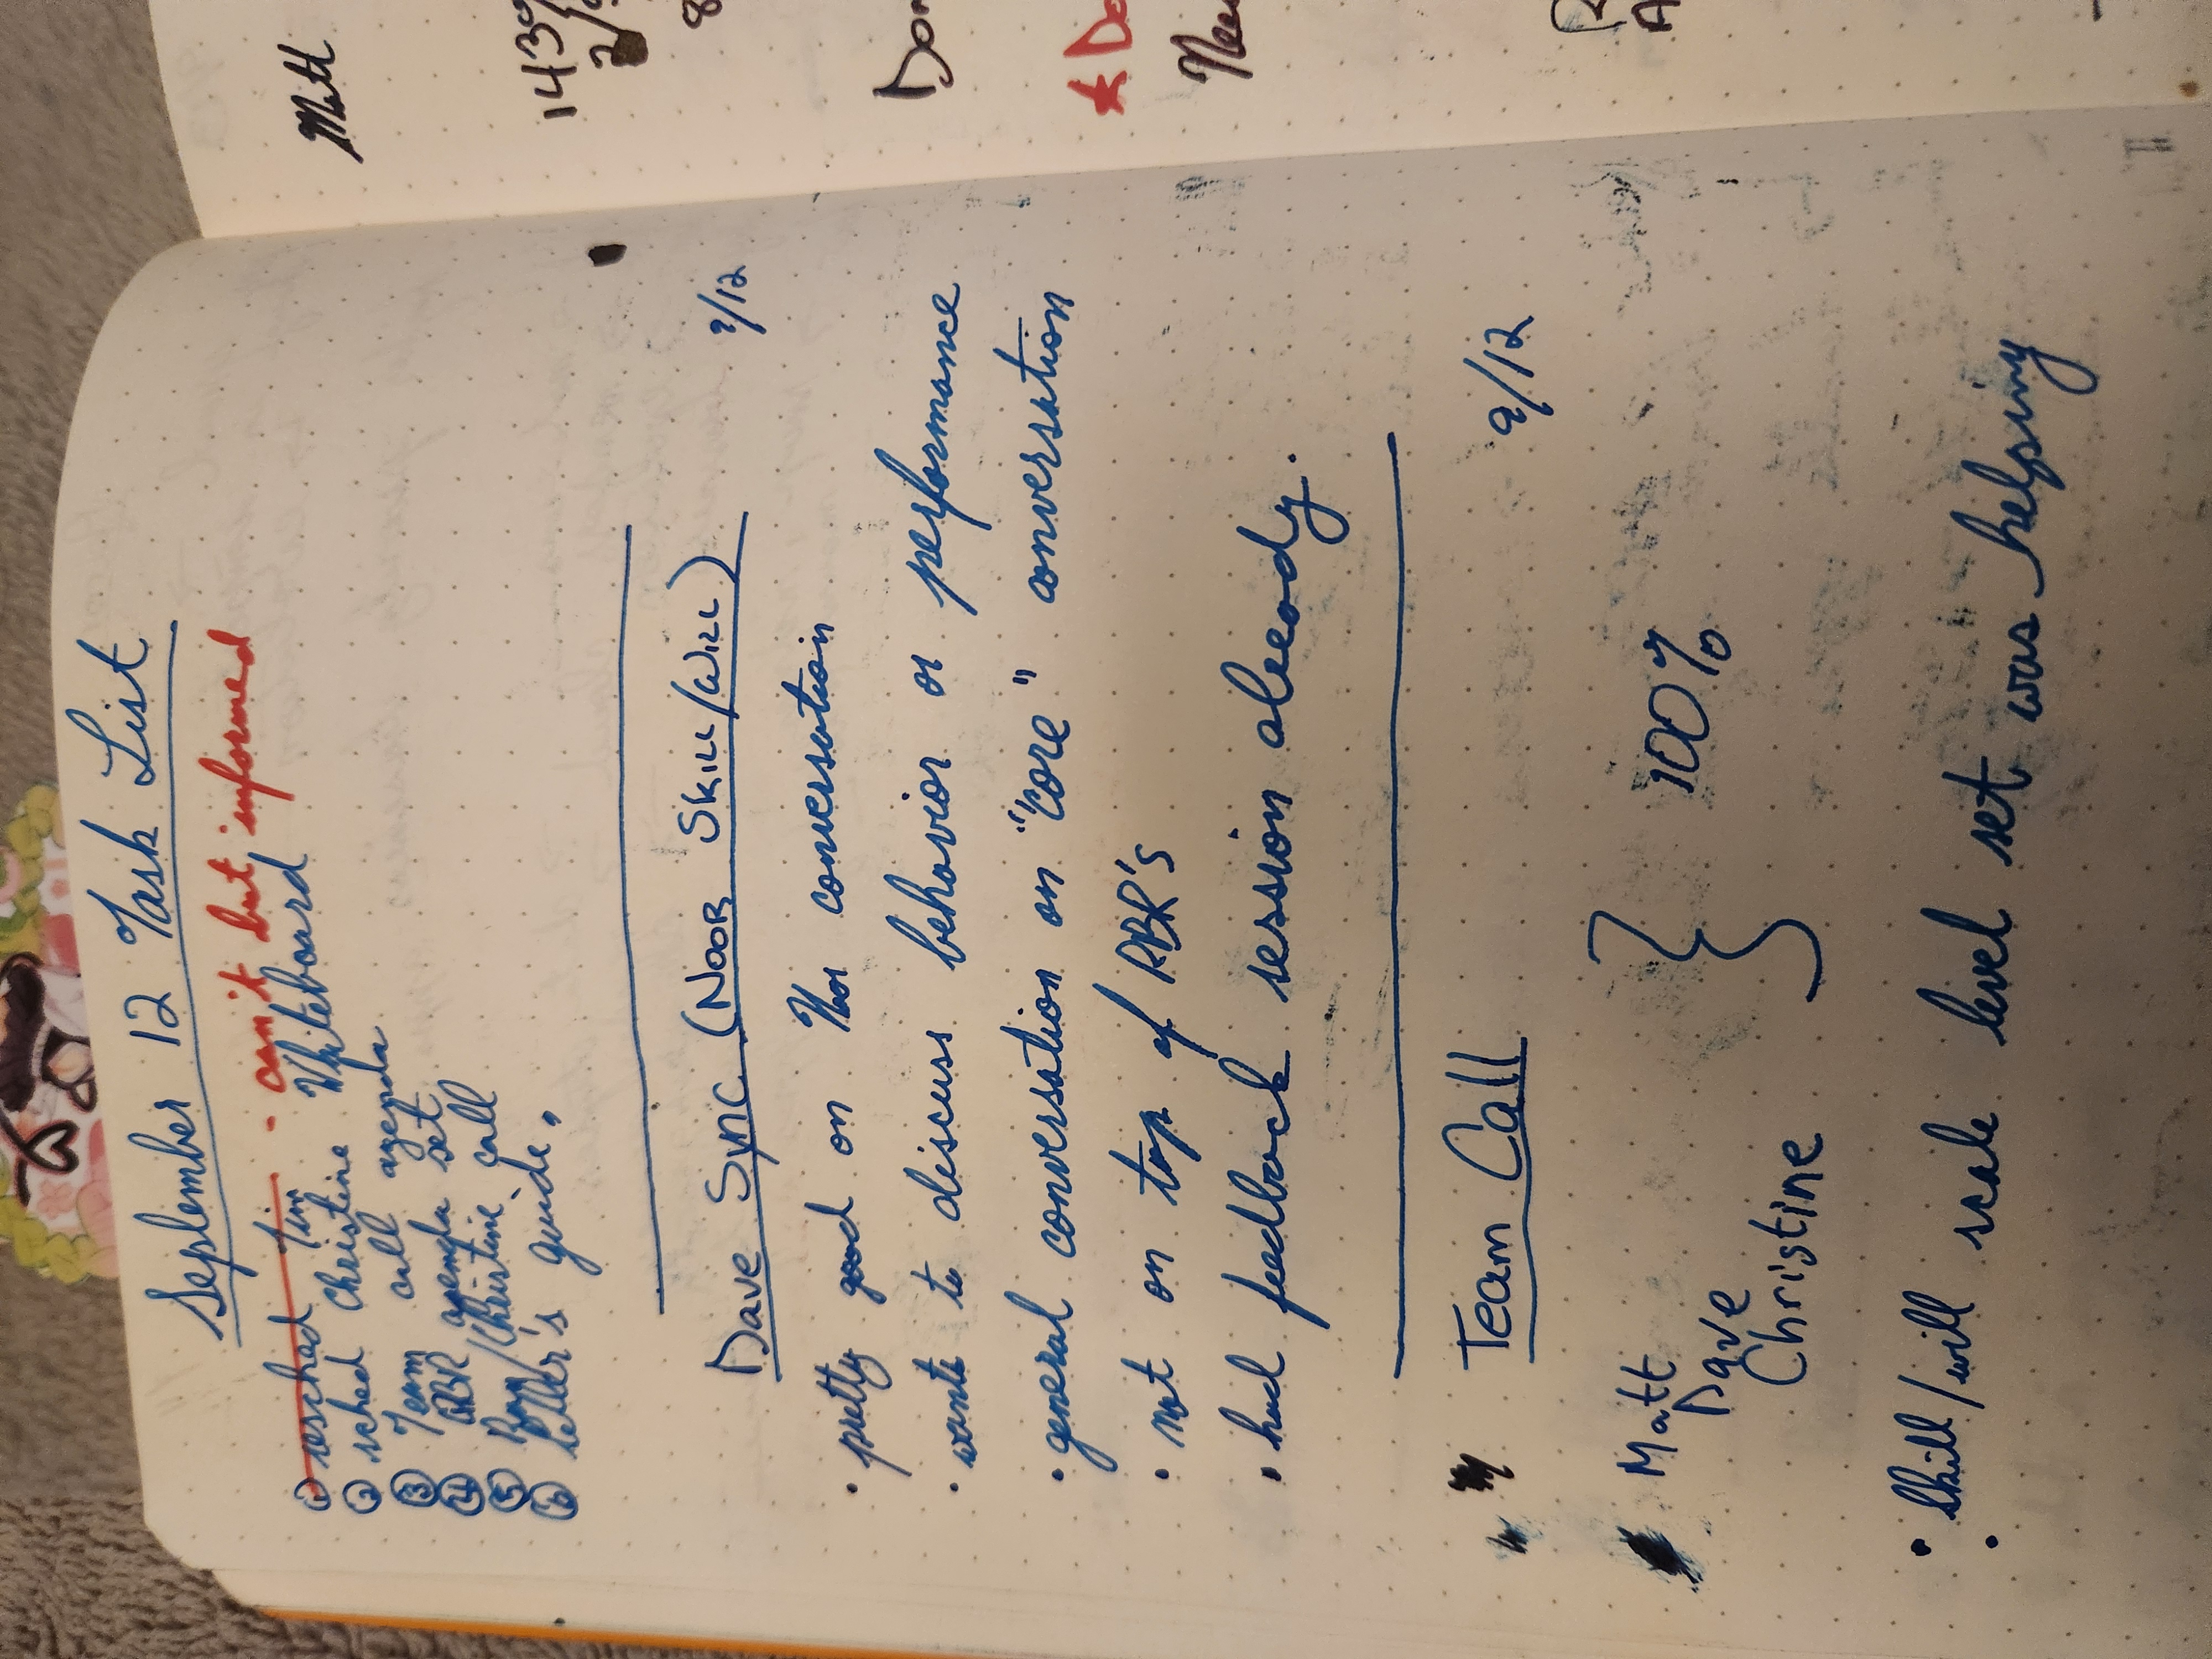 September 12 Task List
① resched Tim - can't but informed
② sched Christine Whiteboard
③ Team call agenda
④ RBR agenda set
⑤ /Christine call
⑥ guide.
Dave Sync (Noor Skill/Will) 9/12
• pretty good on Noor conversation
• wants to discuss behavior or performance
• general conversation on "core" conversation
• not on top of RBR's
• had feedback session already.
Team Call 9/12
Matt
Dave } 100%
Christine
• Skill/will scale level set was helping
•
Matt
143
Don
★ Do